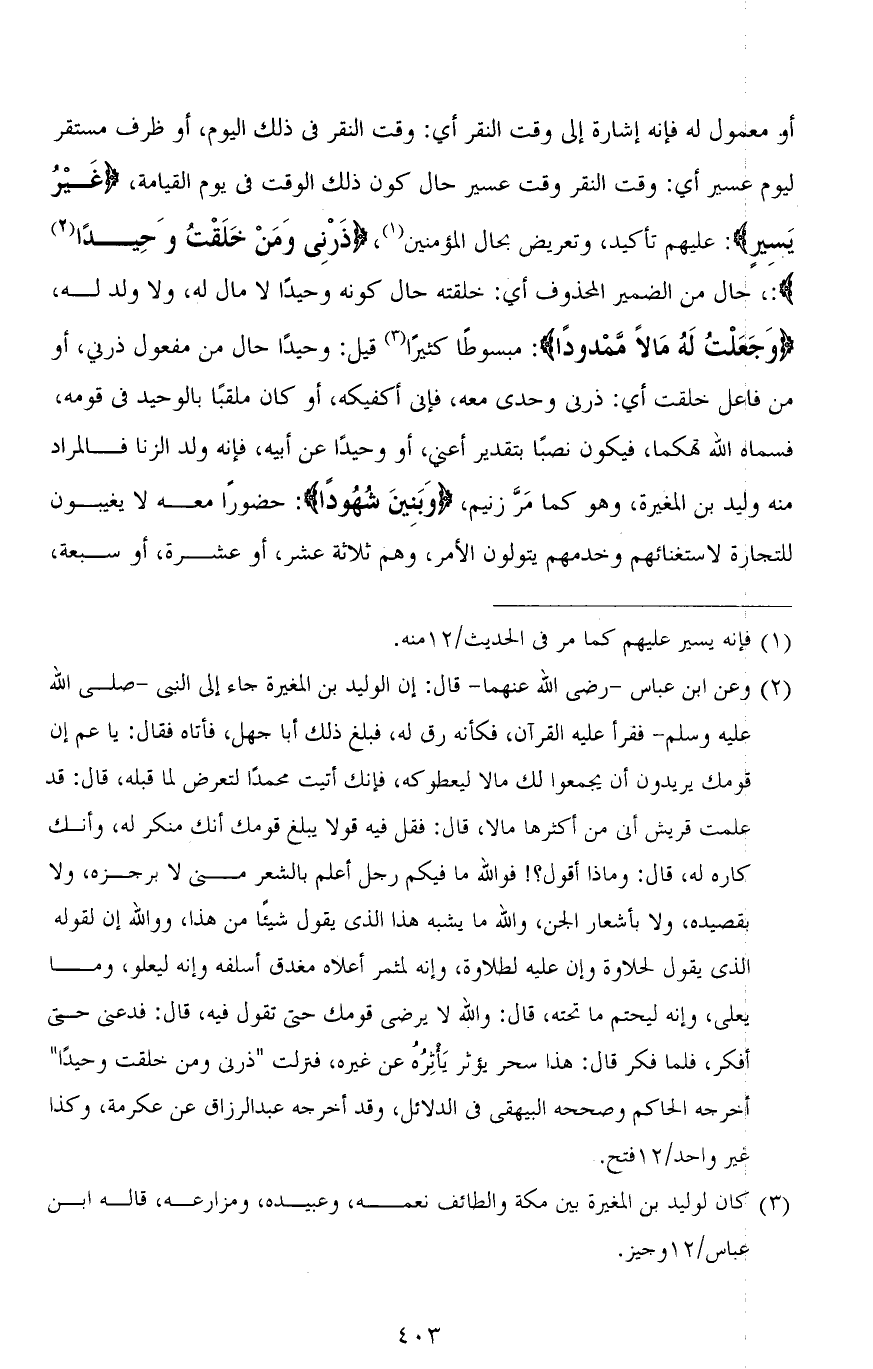 أو معمول له فإنه إشارة إلى وقت النقر أي: وقت النقر فى ذلك اليوم، أو ظرف مستقر
ليوم عسير أي: وقت النقر وقت عسير حال كون ذلك الوقت فى يوم القيامة، ﴿غَيْرُ
يَسِيرٍ﴾: عليهم تأكيد، وتعريض بحال المؤمنين(١)، ﴿ذَرْنِى وَمَنْ خَلَقْتُ وَحِيدًا(٢)
﴾:، حال من الضمير المحذوف أي: خلقته حال كونه وحيدًا لا مال له، ولا ولد له،
﴿وَجَعَلْتُ لَهُ مَالاً مَّمْدودًا﴾: مبسوطًا كثيرًا(٣) قيل: وحيدًا حال من مفعول ذرني، أو
من فاعل خلقت أي: ذرنى وحدى معه، فإنى أكفيكه، أو كان ملقبًا بالوحيد فى قومه،
فسماه الله تهكما، فيكون نصبًا بتقدير أعني، أو وحيدًا عن أبيه، فإنه ولد الزنا فالمراد
منه وليد بن المغيرة، وهو كما مَرَّ زنيم، ﴿وَبَنِينَ شُهُودًا﴾: حضورًا معه لا يغيبون
للتجارة لاستغنائهم وخدمهم يتولون الأمر، وهم ثلاثة عشر، أو عشرة، أو سبعة،
(١) فإنه يسير عليهم كما مر فى الحديث/١٢منه.
(٢) وعن ابن عباس -رضى الله عنهما- قال: إن الوليد بن المغيرة جاء إلى النبى -صلى الله
عليه وسلم- فقرأ عليه القرآن، فكأنه رق له، فبلغ ذلك أبا جهل، فأتاه فقال: يا عم إن
قومك يريدون أن يجمعوا لك مالا ليعطوكه، فإنك أتيت محمدًا لتعرض لما قبله، قال: قد
علمت قريش أنى من أكثرها مالا، قال: فقل فيه قولا يبلغ قومك أنك منكر له، وأنك
كاره له، قال: وماذا أقول؟! فوالله ما فيكم رجل أعلم بالشعر منى لا برجزه، ولا
بقصيده، ولا بأشعار الجن، والله ما يشبه هذا الذى يقول شيئًا من هذا، ووالله إن لقوله
الذى يقول لحلاوة وإن عليه لطلاوة، وإنه لمثمر أعلاه مغدق أسلفه وإنه ليعلو، وما
يعلى، وإنه ليحتم ما تحته، قال: والله لا يرضى قومك حتى تقول فيه، قال: فدعنى حتى
أفكر، فلما فكر قال: هذا سحر يؤثر يَأْثِرُهُ عن غيره، فنزلت "ذرنى ومن خلقت وحيدًا"
أخرجه الحاكم وصححه البيهقى فى الدلائل، وقد أخرجه عبدالرزاق عن عكرمة، وكذا
غير واحد/١٢فتح.
(٣) كان لوليد بن المغيرة بين مكة والطائف نعمه، وعبيده، ومزارعه، قاله ابن
عباس/١٢وجيز.
٤٠٣